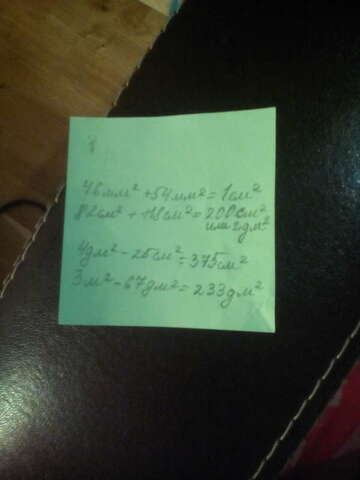 46мм² + 54мм² = 1см²
82см² + 118см² = 200см²
или 2дм²
4дм² - 25см² = 375см²
3м² - 67дм² = 233дм²